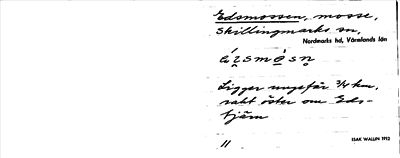 Edsmossen, mosse,
Skillingmarks sn,
Nordmarks hd, Värmlands län
Ligger ungefär 3/4 km,
rakt öster om Eds-
tjärn
11
ESAK WALLIN 1932